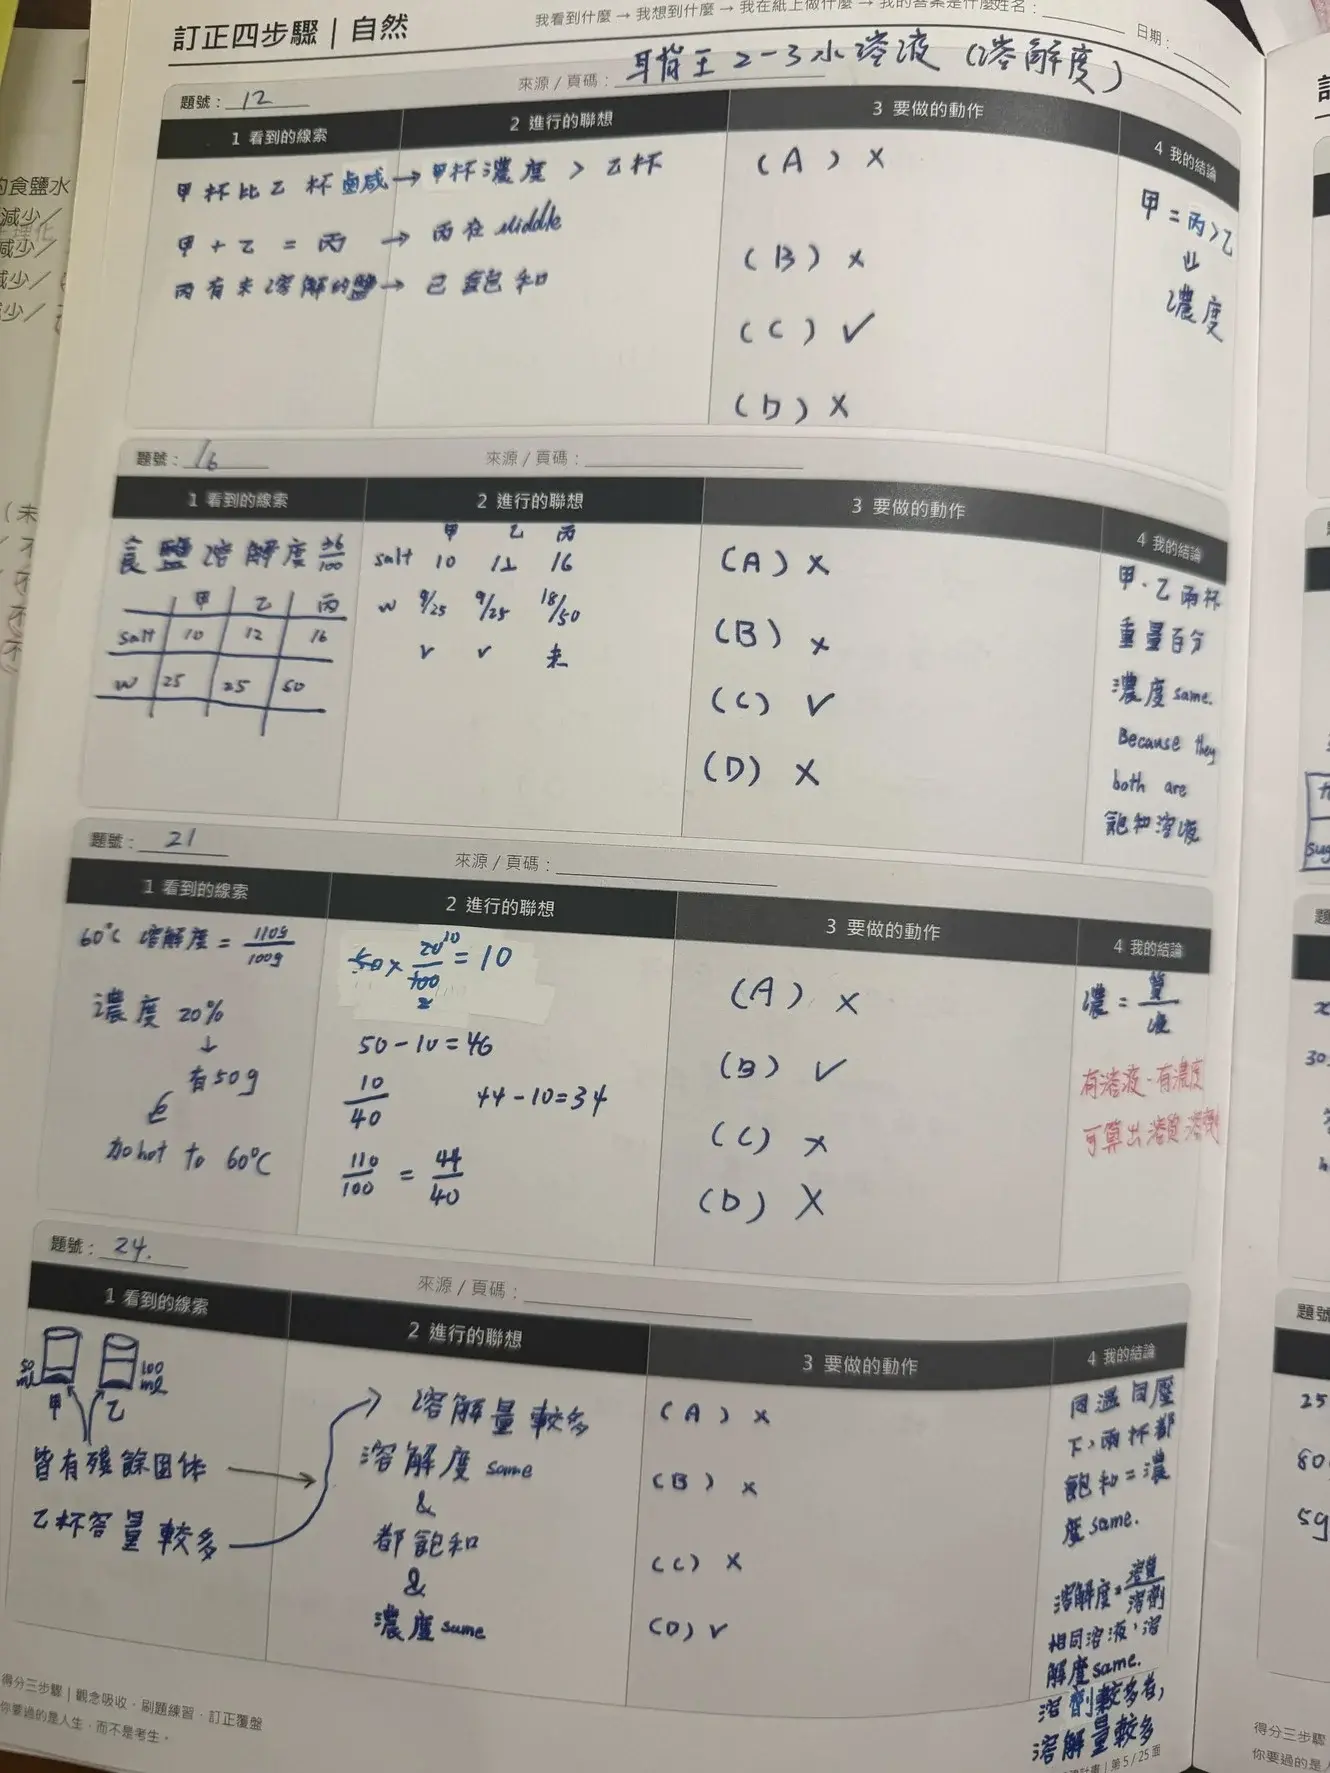 訂正四步驟｜自然
我看到什麼 → 我想到什麼 → 我在紙上做什麼 → 我的答案是什麼
姓名：
日期：
來源 / 頁碼：
2-3 水溶液（溶解度）
題號：12
1 看到的線索
2 進行的聯想
3 要做的動作
4 我的結論
甲杯比乙杯鹵咸→甲杯濃度 > 乙杯
甲 + 乙 = 丙 → 丙在 Middle
丙有未溶解的鹽→ 已飽和
(A) X
(B) X
(C) ✓
(D) X
甲 = 丙 > 乙
⇓
濃度
題號：16
來源 / 頁碼：
1 看到的線索
2 進行的聯想
3 要做的動作
4 我的結論
食鹽溶解度 36/100
甲 乙 丙
salt 10 12 16
W 25 25 50
甲 乙 丙
salt 10 12 16
W 9/25 9/25 18/50
v v 未
(A) X
(B) X
(C) ✓
(D) X
甲、乙兩杯
重量百分
濃度 same.
Because they
both are
飽和溶液
題號：21
來源 / 頁碼：
1 看到的線索
2 進行的聯想
3 要做的動作
4 我的結論
60°C 溶解度 = 110g/100g
濃度 20%
↓
有50g
加hot to 60°C
50 × 20/100 = 10
50 - 10 = 40
10/40
44 - 10 = 34
110/100 = 44/40
(A) X
(B) ✓
(C) X
(D) X
濃 = 質/液
有溶液、有濃度
可算出溶質溶劑
題號：24.
來源 / 頁碼：
1 看到的線索
2 進行的聯想
3 要做的動作
4 我的結論
50 ml
100 ml
甲 乙
皆有殘餘固体
乙杯容量較多
溶解量較多
溶解度 same
&
都飽和
&
濃度 same
(A) X
(B) X
(C) X
(D) ✓
同溫同壓
下，兩杯都
飽和 = 濃
度 same.
溶解度 = 溶質/溶劑
相同溶液，溶
解度 same.
溶劑較多者，
溶解量較多
得分三步驟｜觀念吸收．刷題練習．訂正覆盤
你要過的是人生，而不是考生。
計畫｜第 5 / 25 面
的食鹽水
減少／
減少／
減少／
少／
（未
題號
25
80
59
得分三步驟
你要過的是人